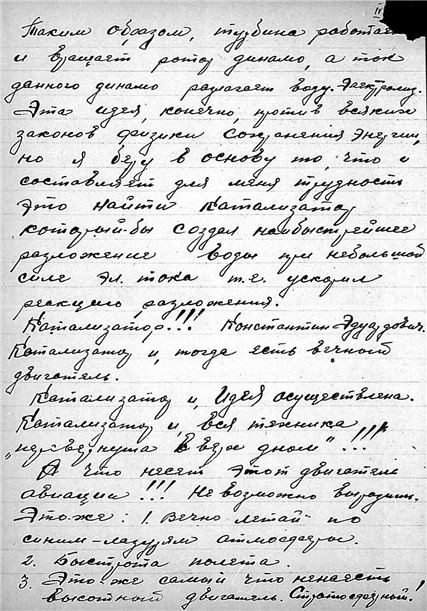 Таким образом, турбина работает
и вращает ротор динамо, а ток
данного динамо разлагает воду. Электролиз.
Эта идея, конечно, против всяких
законов физики сохранения энергии,
но я беру в основу то, что и
составляет для меня трудность
это найти катализатор
который-бы создал наибыстрейшее
разложение воды при небольшой
силе эл. тока т.е. ускорил
реакцию разложения.
Катализатор!!! Константин Эдуардович.
Катализатор и, тогда есть вечный
двигатель.
Катализатор и, идея осуществлена.
Катализатор и, вся техника
„перевернута вверх дном"!!!
А что несет этот двигатель
авиации!!! Невозможно выразить.
Это-же: 1. Вечно летай по
синим-лазурям атмосферы.
2. Быстрота полета.
3. Это-же самый что ненаесть
высотный двигатель. Стратосферный!